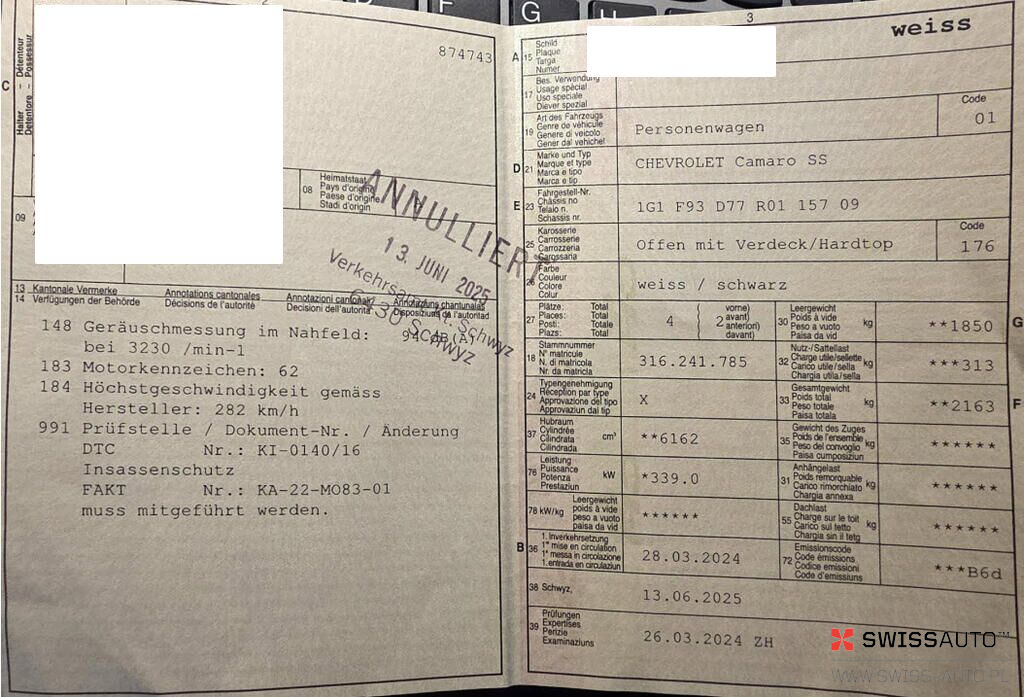 F
G
2
3
C
Halter - Détenteur
Detentore - Possessur
874743
weiss
A 15 Schild
Plaque
Targa
Numer
17 Bes. Verwendung
Usage spécial
Uso speciale
Diever spezial
19 Art des Fahrzeugs
Genre de véhicule
Genere di veicolo
Gener dal vehichel
Personenwagen
Code
01
D 21 Marke und Typ
Marque et type
Marca e tipo
Marca e tip
CHEVROLET Camaro SS
08 Heimatstaat
Pays d'origine
Paese d'origine
Stadi d'origin
E 23 Fahrgestell-Nr.
Châssis no
Telaio n.
Schassis nr.
1G1 F93 D77 R01 157 09
09
25 Karosserie
Carrosserie
Carrozzeria
Carossaria
Offen mit Verdeck/Hardtop
Code
176
ANNULLIERT
13. JUNI 2025
Verkehrsamt Schwyz
6430 Schwyz
26 Farbe
Couleur
Colore
Colur
weiss / schwarz
13 Kantonale Vermerke Annotations cantonales Annotazioni cantonali Annotaziuns chantunalas
14 Verfügungen der Behörde Décisions de l'autorité Decisioni dell'autorità Disposiziuns da l'autoritad
148 Geräuschmessung im Nahfeld: 94 dB(A)
bei 3230 /min-1
183 Motorkennzeichen: 62
184 Höchstgeschwindigkeit gemäss
Hersteller: 282 km/h
991 Prüfstelle / Dokument-Nr. / Änderung
DTC Nr.: KI-0140/16
Insassenschutz
FAKT Nr.: KA-22-MO83-01
muss mitgeführt werden.
27 Plätze: Total
Places: Total
Posti: Totale
Plazs: Total
4
2
vorne)
avant)
anteriori)
davant)
30 Leergewicht
Poids à vide
Peso a vuoto
Paisa da vid
kg
**1850
G
18 Stammnummer
N° matricule
N. di matricola
Nr. da matricla
316.241.785
32 Nutz-/Sattellast
Charge utile/sellette
Carico utile/sella
Chargia utila/sella
kg
***313
24 Typengenehmigung
Réception par type
Approvazione del tipo
Approvaziun dal tip
X
33 Gesamtgewicht
Poids total
Peso totale
Paisa totala
kg
**2163
F
37 Hubraum
Cylindrée
Cilindrata
Cilindrada
cm³
**6162
35 Gewicht des Zuges
Poids de l'ensemble
Peso del convoglio
Paisa cumposiziun
kg
******
76 Leistung
Puissance
Potenza
Prestaziun
kW
*339.0
31 Anhängelast
Poids remorquable
Carico rimorchiato
Chargia annexa
kg
******
78 kW/kg
Leergewicht
poids à vide
peso a vuoto
paisa da vid
******
55 Dachlast
Charge sur le toit
Carico sul tetto
Chargia sin il tetg
kg
******
B 36 1. Inverkehrsetzung
1re mise en circulation
1a messa in circolazione
1. entrada en circulaziun
28.03.2024
72 Emissionscode
Code émissions
Codice emissioni
Code d'emissiuns
***B6d
38 Schwyz,
13.06.2025
39 Prüfungen
Expertises
Perizie
Examinaziuns
26.03.2024 ZH
SWISSAUTO™
WWW.SWISS-AUTO.PL